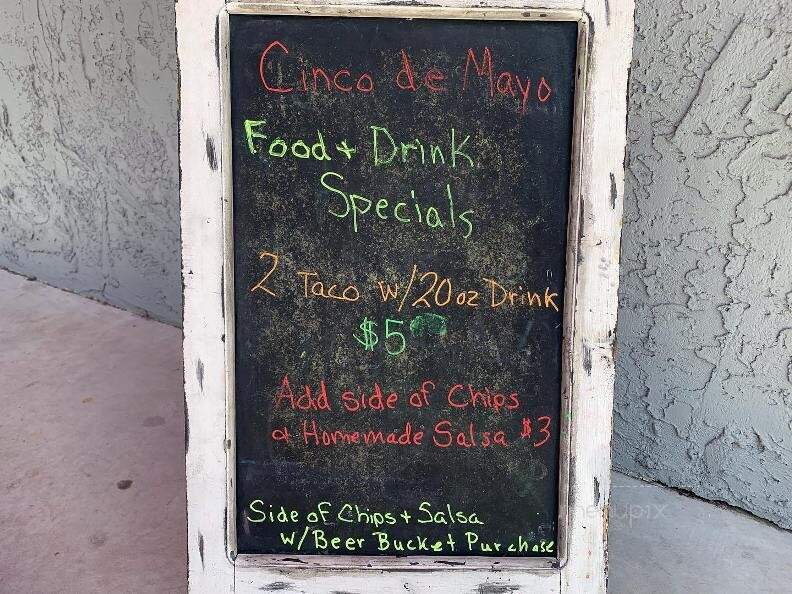 Cinco de Mayo
Food + Drink
Specials
2 Taco w/20 oz Drink
$5
Add side of Chips
& Homemade Salsa $3
Side of Chips + Salsa
w/Beer Bucket Purchase